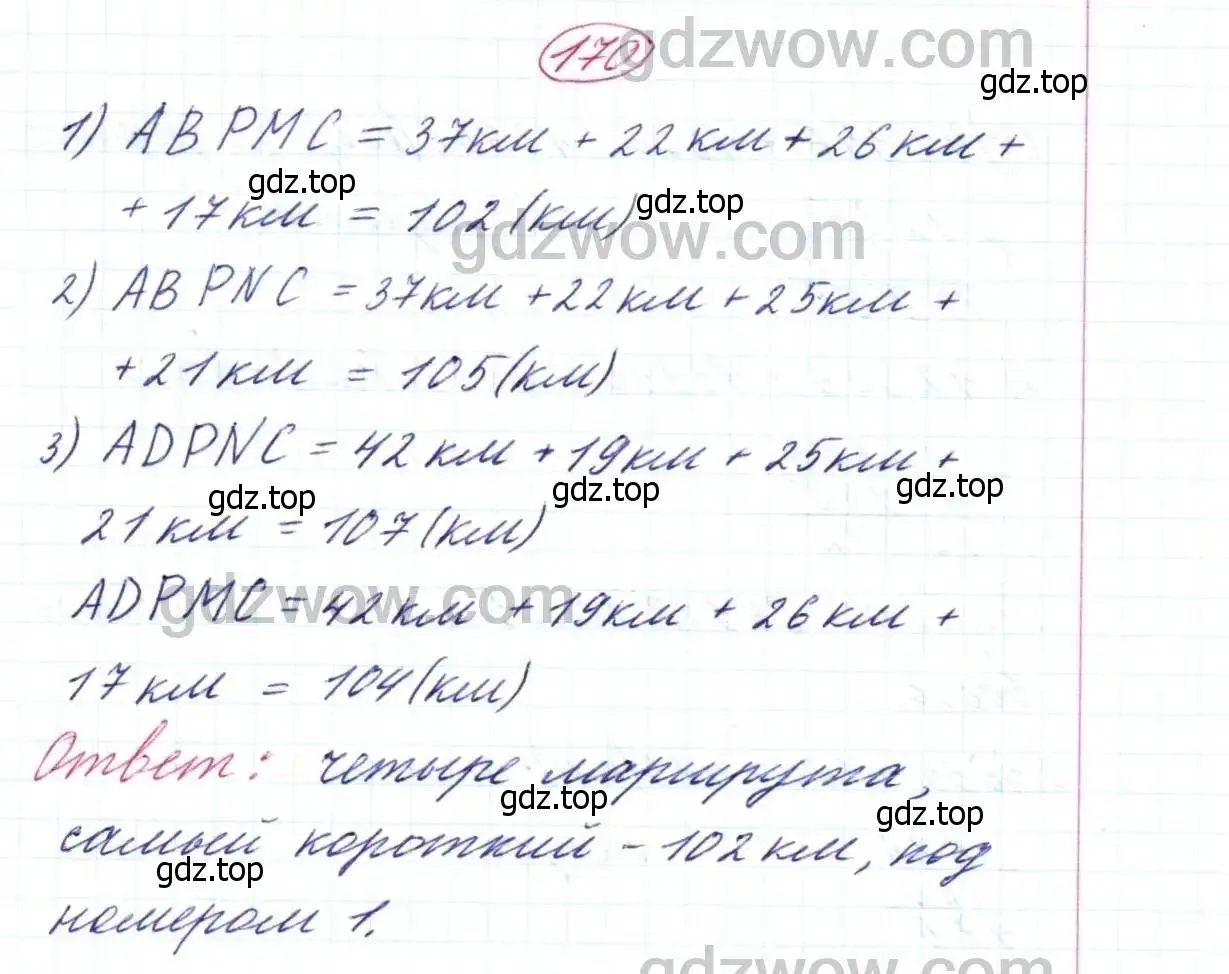 170 gdzwow.com
gdz.top
1) ABPMC = 37км + 22км + 26км +
gdz.top
+ 17км = 102 (км) gdz.top
gdzwow.com
2) ABPNC = 37км + 22км + 25км +
+ 21км = 105 (км)
3) ADPNC = 42км + 19км + 25км +
gdz.top gdz.top gdz.top
21км = 107 (км)
gdzwow.com
ADPMC = 42км + 19км + 26км +
17км = 104 (км)
Ответ: четыре маршрута,
gdz.top gdz.top
самый короткий - 102 км, под
gdz.top
номером 1.
gdzwow.com